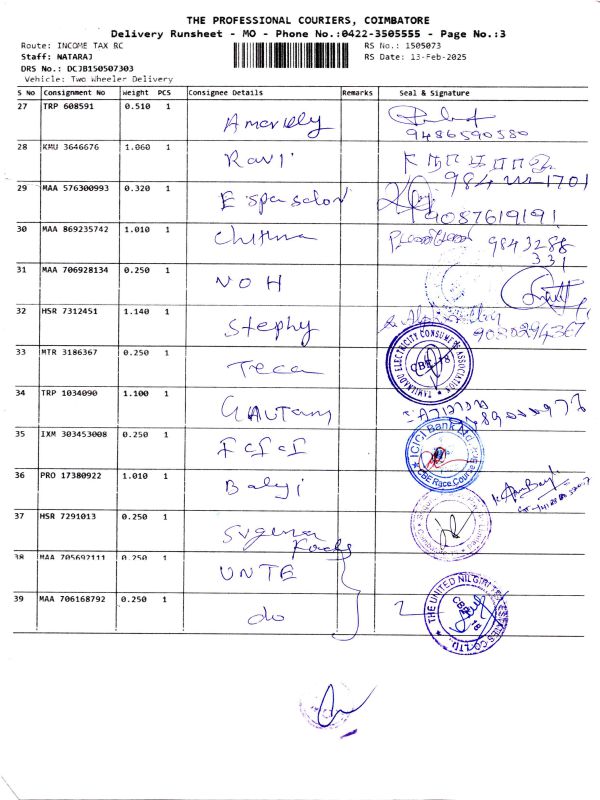 THE PROFESSIONAL COURIERS, COIMBATORE
Delivery Runsheet - MO - Phone No.:0422-3505555 - Page No.:3
Route: INCOME TAX RC RS No.: 1505073
Staff: NATARAJ RS Date: 13-Feb-2025
DRS No.: DCJB150507303
Vehicle: Two Wheeler Delivery
S No Consignment No Weight PCS Consignee Details Remarks Seal & Signature
27 TRP 608591 0.510 1
9486590380
28 KMU 3646676 1.060 1 Ravi
29 MAA 576300993 0.320 1
9087619191
30 MAA 869235742 1.010 1 ChitHra 9843288
331
31 MAA 706928134 0.250 1 NOH
32 HSR 7312451 1.140 1 Stephy
9080294367
33 MTR 3186367 0.250 1 Teca TAMILNADU ELECTRICITY CONSUMERS ASSOCIATION CBE - 18
34 TRP 1034090 1.100 1 GAUTAM
35 IXM 303453008 0.250 1 ICICI Bank Ltd. CBE Race Course Br.
36 PRO 17380922 1.010 1 Balaji
37 HSR 7291013 0.250 1 Suguna
Foods
38 MAA 705692111 0.250 1 UNTE
39 MAA 706168792 0.250 1 do THE UNITED NILGIRI TEA ESTATES CO LTD. CBE 18